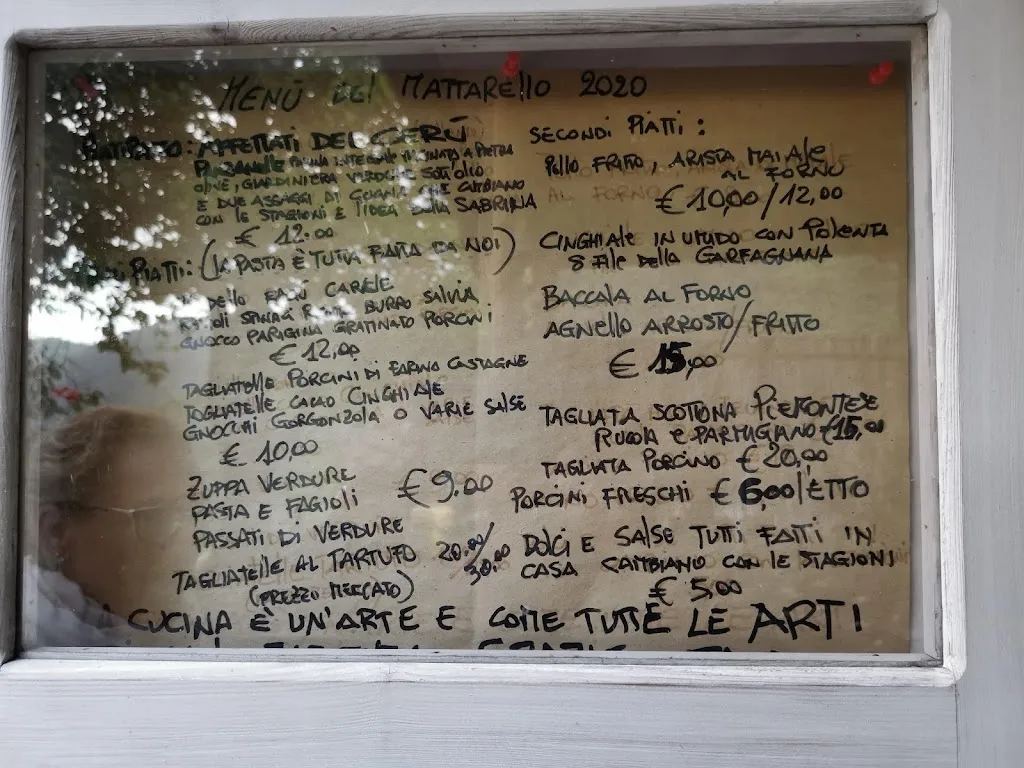 MENÙ DEL MATTARELLO 2020
AFFETTATI DEL GERÙ
PANZANELLE FARINA INTEGRALE MACINATA A PIETRA
OLIVE, GIARDINIERA VERDURE SOTT'OLIO
E DUE ASSAGGI DI CHE CAMBIANO
CON LE STAGIONI E L'IDEA DELLA SABRINA
€ 12.00
PIATTI: (LA PASTA È TUTTA FATTA DA NOI)
DELLO
DI BURRO SALVIA
GNOCCO PARIGINA GRATINATO PORCINI
€ 12,00
TAGLIATELLE PORCINI DI FARINA CASTAGNE
TAGLIATELLE CACAO CINGHIALE
GNOCCHI GORGONZOLA O VARIE SALSE
€ 10,00
ZUPPA VERDURE
PASTA E FAGIOLI
€ 9.00
PASSATI DI VERDURE
TAGLIATELLE AL TARTUFO 20.00/30.00
(PREZZO MERCATO)
SECONDI PIATTI:
POLLO FRITTO, ARISTA MAIALE
AL FORNO
€ 10,00/12,00
CINGHIALE IN UMIDO CON POLENTA
8 FILE DELLA GARFAGNANA
BACCALA AL FORNO
AGNELLO ARROSTO/FRITTO
€ 15,00
TAGLIATA SCOTTONA PIEMONTESE
RUCOLA E PARMIGIANO €15,00
TAGLIATA PORCINO €20,00
PORCINI FRESCHI € 6,00/ETTO
DOLCI E SALSE TUTTI FATTI IN
CASA CAMBIANO CON LE STAGIONI
€ 5,00
CUCINA È UN'ARTE E COME TUTTE LE ARTI